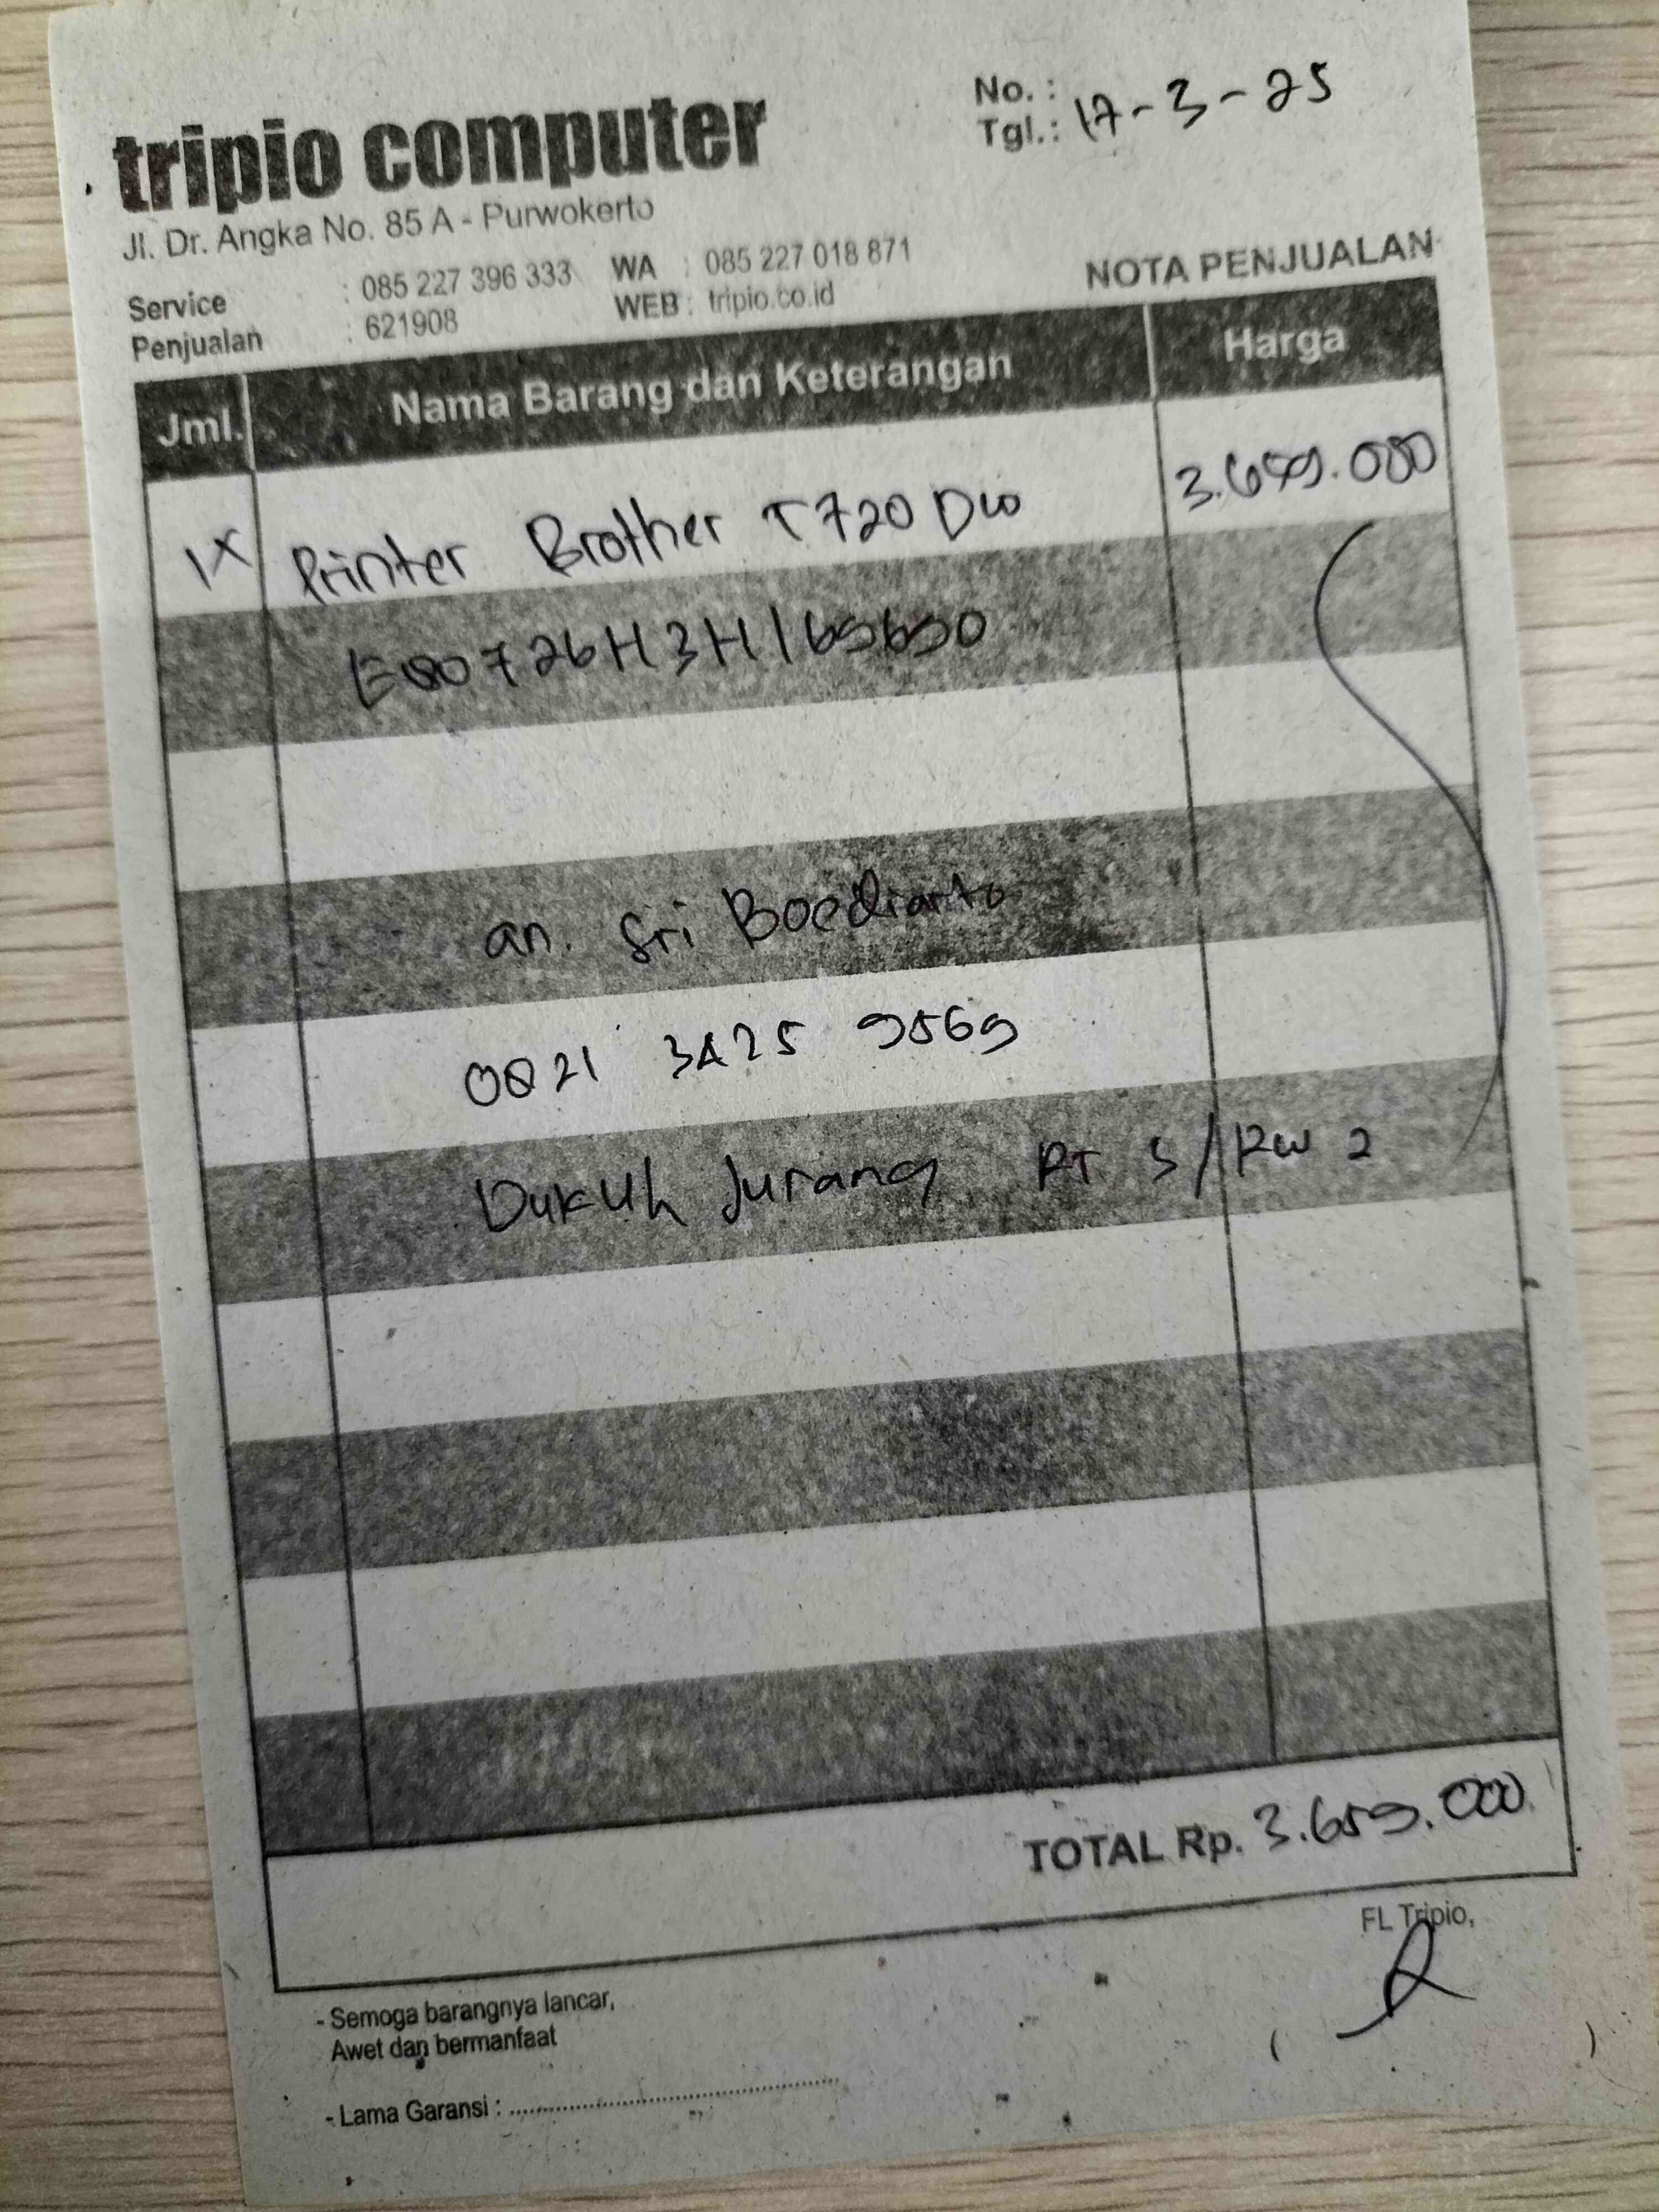 No. :
Tgl.: 17-3-25
tripio computer
Jl. Dr. Angka No. 85 A - Purwokerto
Service : 085 227 396 333 WA : 085 227 018 871
Penjualan : 621908 WEB : tripio.co.id
NOTA PENJUALAN
Jml. Nama Barang dan Keterangan Harga
1x Printer Brother T720 DW 3.659.000
E80726H3H165650
an. Sri Boediarto
0821 3425 9569
Dukuh Jurang RT 5/RW 2
TOTAL Rp. 3.659.000
FL Tripio,
- Semoga barangnya lancar,
Awet dan bermanfaat
( )
- Lama Garansi : ..............................